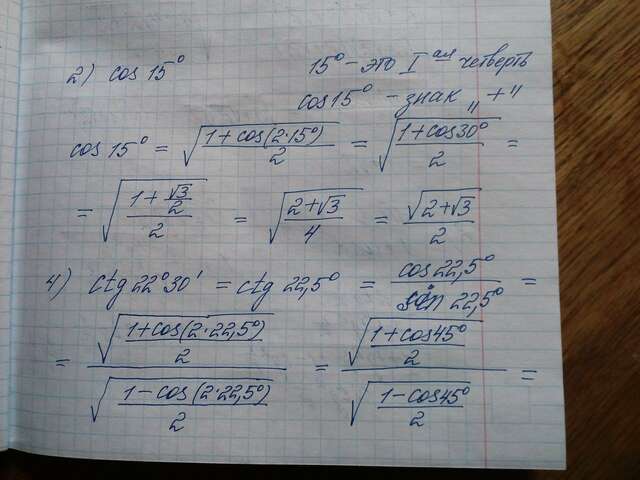 2) cos 15° 15° - это I ая четверть
cos 15° - знак „+"
cos 15° = √((1 + cos(2·15°))/2) = √((1 + cos 30°)/2) =
= √((1 + √3/2)/2) = √((2 + √3)/4) = √(2 + √3)/2
4) ctg 22°30' = ctg 22,5° = cos 22,5°/sin 22,5° =
= √((1 + cos(2·22,5°))/2)/√((1 - cos(2·22,5°))/2) = √((1 + cos 45°)/2)/√((1 - cos 45°)/2) =